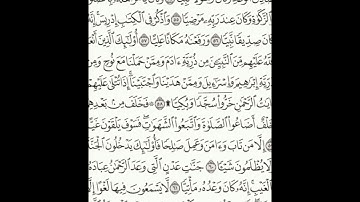 وَٱلزَّكَوٰةِ وَكَانَ عِندَ رَبِّهِۦ مَرْضِيًّا ٥٥ وَٱذْكُرْ فِى ٱلْكِتَٰبِ إِدْرِيسَ إِنَّهُۥ
كَانَ صِدِّيقًا نَّبِيًّا ٥٦ وَرَفَعْنَٰهُ مَكَانًا عَلِيًّا ٥٧ أُو۟لَٰٓئِكَ ٱلَّذِينَ
ٱللَّهُ عَلَيْهِم مِّنَ ٱلنَّبِيِّـۧنَ مِن ذُرِّيَّةِ ءَادَمَ وَمِمَّنْ حَمَلْنَا مَعَ نُوحٍ وَمِن
ذُرِّيَّةِ إِبْرَٰهِيمَ وَإِسْرَٰٓءِيلَ وَمِمَّنْ هَدَيْنَا وَٱجْتَبَيْنَآ إِذَا تُتْلَىٰ عَلَيْهِمْ
ءَايَٰتُ ٱلرَّحْمَٰنِ خَرُّوا۟ سُجَّدًا وَبُكِيًّا ۩ ٥٨ فَخَلَفَ مِنۢ بَعْدِهِمْ
خَلْفٌ أَضَاعُوا۟ ٱلصَّلَوٰةَ وَٱتَّبَعُوا۟ ٱلشَّهَوَٰتِ فَسَوْفَ يَلْقَوْنَ غَيًّا
إِلَّا مَن تَابَ وَءَامَنَ وَعَمِلَ صَٰلِحًا فَأُو۟لَٰٓئِكَ يَدْخُلُونَ ٱلْجَنَّةَ
وَلَا يُظْلَمُونَ شَيْـًٔا ٦٠ جَنَّٰتِ عَدْنٍ ٱلَّتِى وَعَدَ ٱلرَّحْمَٰنُ عِبَادَهُۥ
بِٱلْغَيْبِ إِنَّهُۥ كَانَ وَعْدُهُۥ مَأْتِيًّا ٦١ لَّا يَسْمَعُونَ فِيهَا لَغْوًا إِلَّا